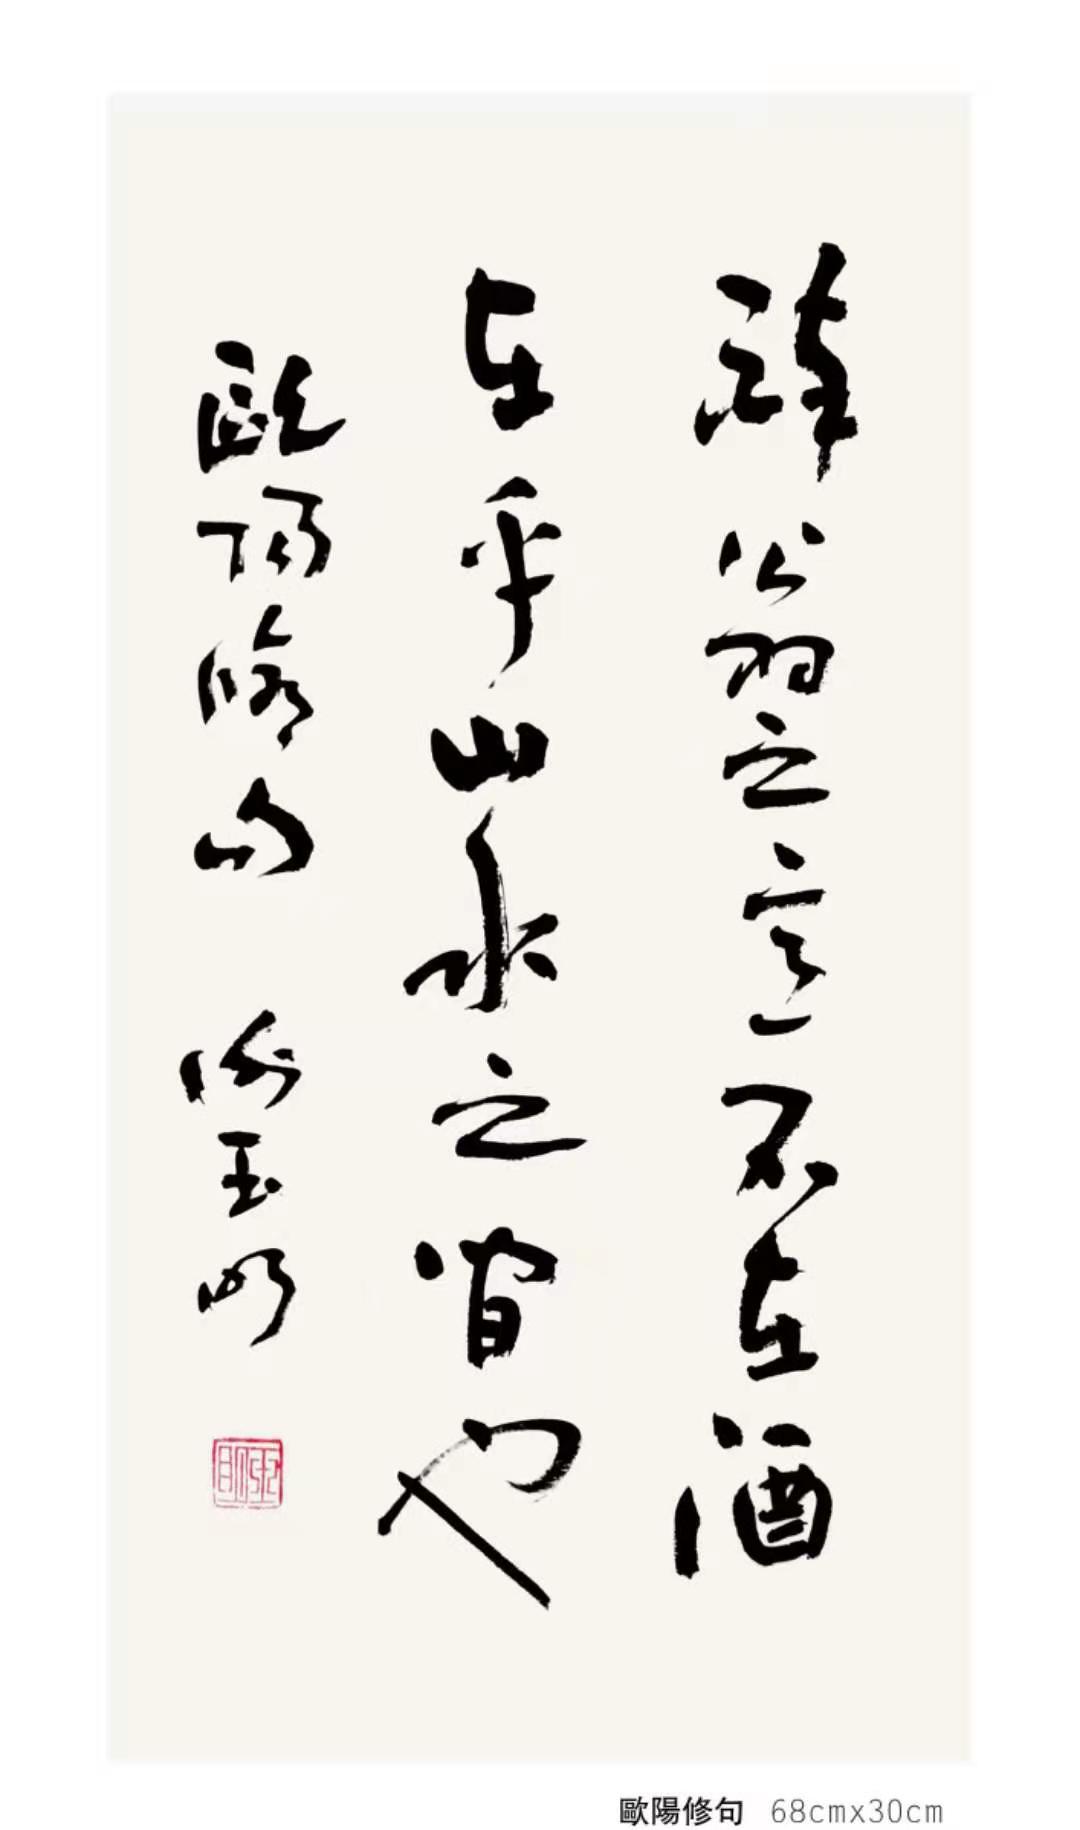 醉翁之意不在酒
在乎山水之間也
歐陽修句 玉明
歐陽修句 68cmx30cm